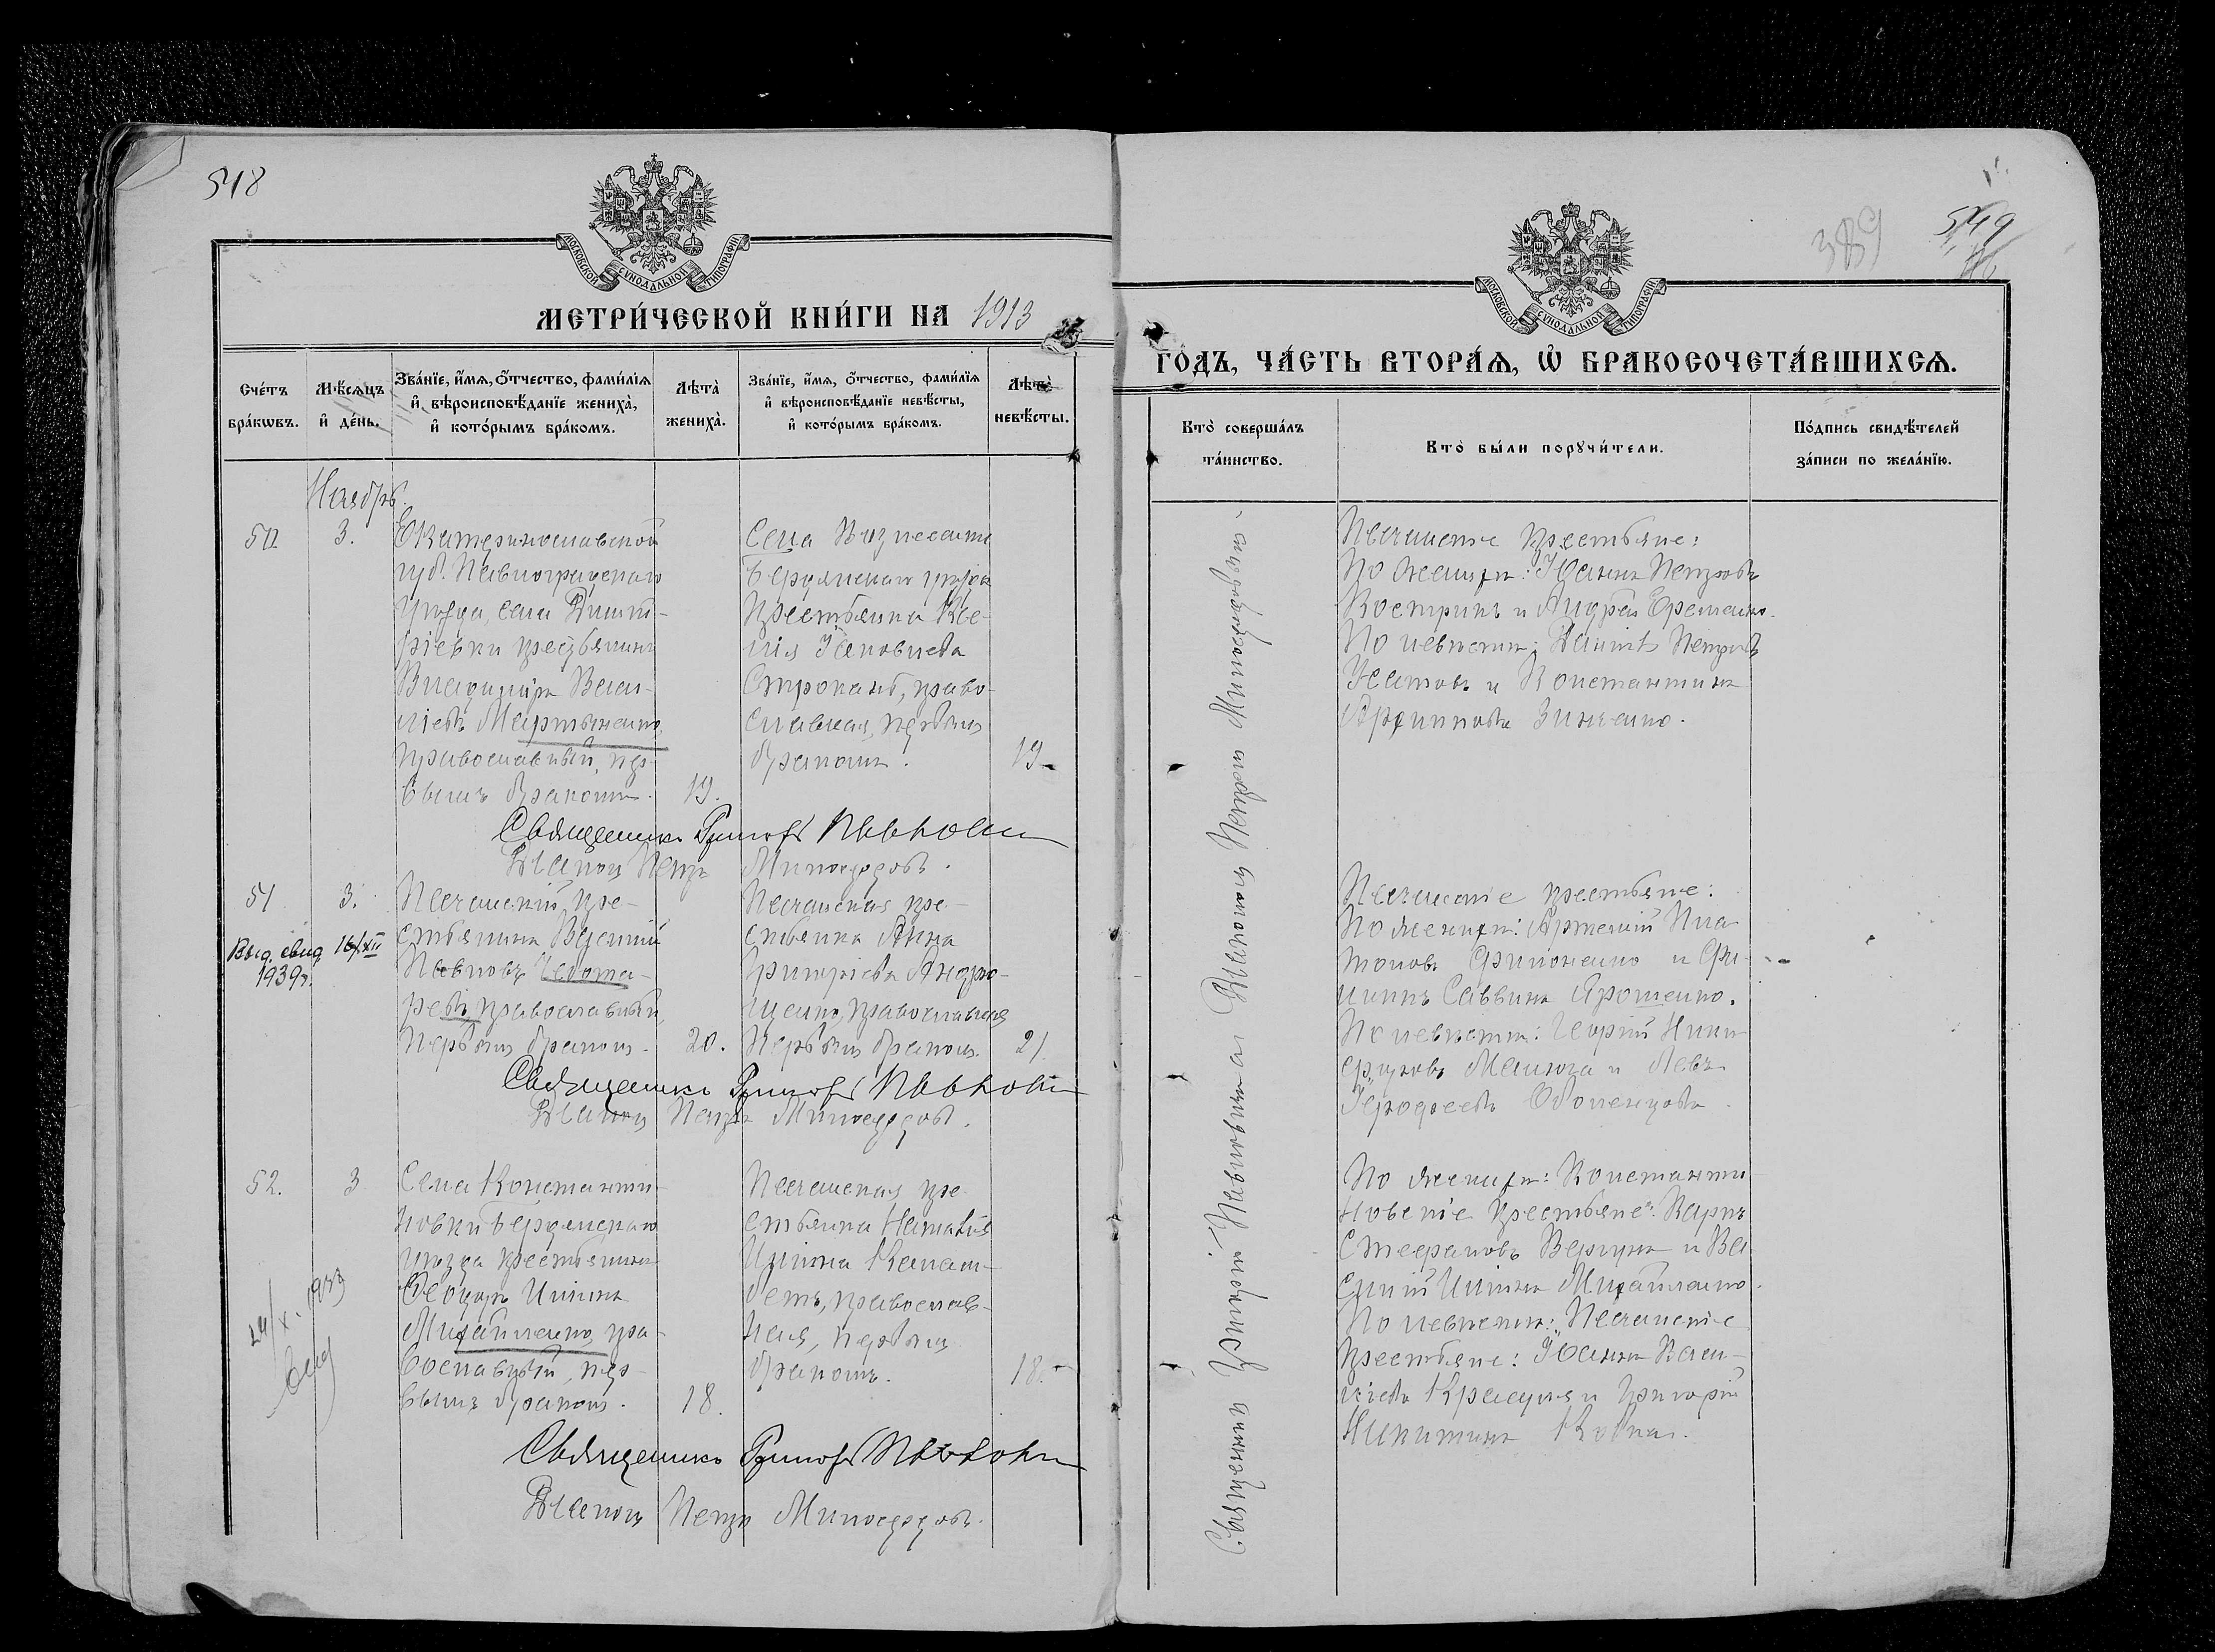 518
МОСКОВСКОЙ СѴНОДАЛЬНОЙ ТИПОГРАФІИ
МЕТРИ́ЧЕСКОЙ КНИ́ГИ НА 1913
Сче́тъ бра́кѡвъ.
Мѣ́сѧцъ и҆ де́нь.
Зва́нїе, и҆́мѧ, ѻ҆́тчество, фами́лїѧ и҆ вѣроисповѣ́данїе жениха̀, и҆ кото́рымъ бра́комъ.
Лѣта̀ жениха̀.
Зва́нїе, и҆́мѧ, ѻ҆́тчество, фами́лїѧ и҆ вѣроисповѣ́данїе невѣ́сты, и҆ кото́рымъ бра́комъ.
Лѣта̀ невѣ́сты.
Ноябрь.
50
3.
Екатеринославской
губ. Павлоградскаго
уѣзда, села Дмит-
ріевки крестьянинъ
Владиміръ Васи-
ліевъ Мартыненко,
православный, пер-
вымъ бракомъ.
19.
Села
Бердянскаго уѣзда
крестьянка Ксе-
нія
православная, первымъ
бракомъ.
19
Священникъ Григорій
Діаконъ Петръ Милосердовъ.
51
3.
Выд. свид. 16/XII
1939г.
Песчанскій кре-
стьянинъ Василій
Павловъ Чебота-
ревъ, православный,
первымъ бракомъ.
20.
Песчанская кре-
стьянка Анна
Григоріева Андрю-
щенко, православная
первымъ бракомъ.
21.
Священникъ Григорій
Діаконъ Петръ Милосердовъ.
52.
3
24/X. 1933
Села Константи-
новки Бердянскаго
уѣзда крестьянинъ
Ѳеодоръ Ильинъ
Михайленко, пра-
вославный, пер-
вымъ бракомъ.
18.
Песчанская кре-
стьянка Наталія
Ильина
православ-
ная, первымъ
бракомъ.
18.
Священникъ Григорій
Діаконъ Петръ Милосердовъ.
389
549
МОСКОВСКОЙ СѴНОДАЛЬНОЙ ТИПОГРАФІИ
ГО́ДЪ, ЧА́СТЬ ВТОРА́Ѧ, Ѡ҆ БРАКОСОЧЕТА́ВШИХСѦ.
Кто̀ соверша́лъ та́инство.
Кто̀ бы́ли порꙋчи́тели.
По́дпись свидѣ́телей за́писи по жела́нїю.
Священникъ Григорій съ діакономъ Петромъ Милосердовымъ.
Песчанскіе крестьяне:
По женихѣ: Іоаннъ Петровъ
и Андрей Еременко.
По невѣстѣ: Даніилъ Петровъ
Усатовъ и Константинъ
Архиповъ Зинченко.
Песчанскіе крестьяне:
По женихѣ: Артемій Пла-
тоновъ Филоненко и Фи-
липпъ Саввинъ Ярошенко.
По невѣстѣ: Георгій Ники-
форовъ и Левъ
Іерофеевъ Оболенцевъ.
По женихѣ: Константи-
новскіе крестьяне: Карпъ
Стефановъ Вергунъ и Ва-
силій Ильинъ Михайленко.
По невѣстѣ: Песчанскіе
крестьяне: Іоаннъ Васи-
ліевъ и Григорій
Никитинъ Кобка.